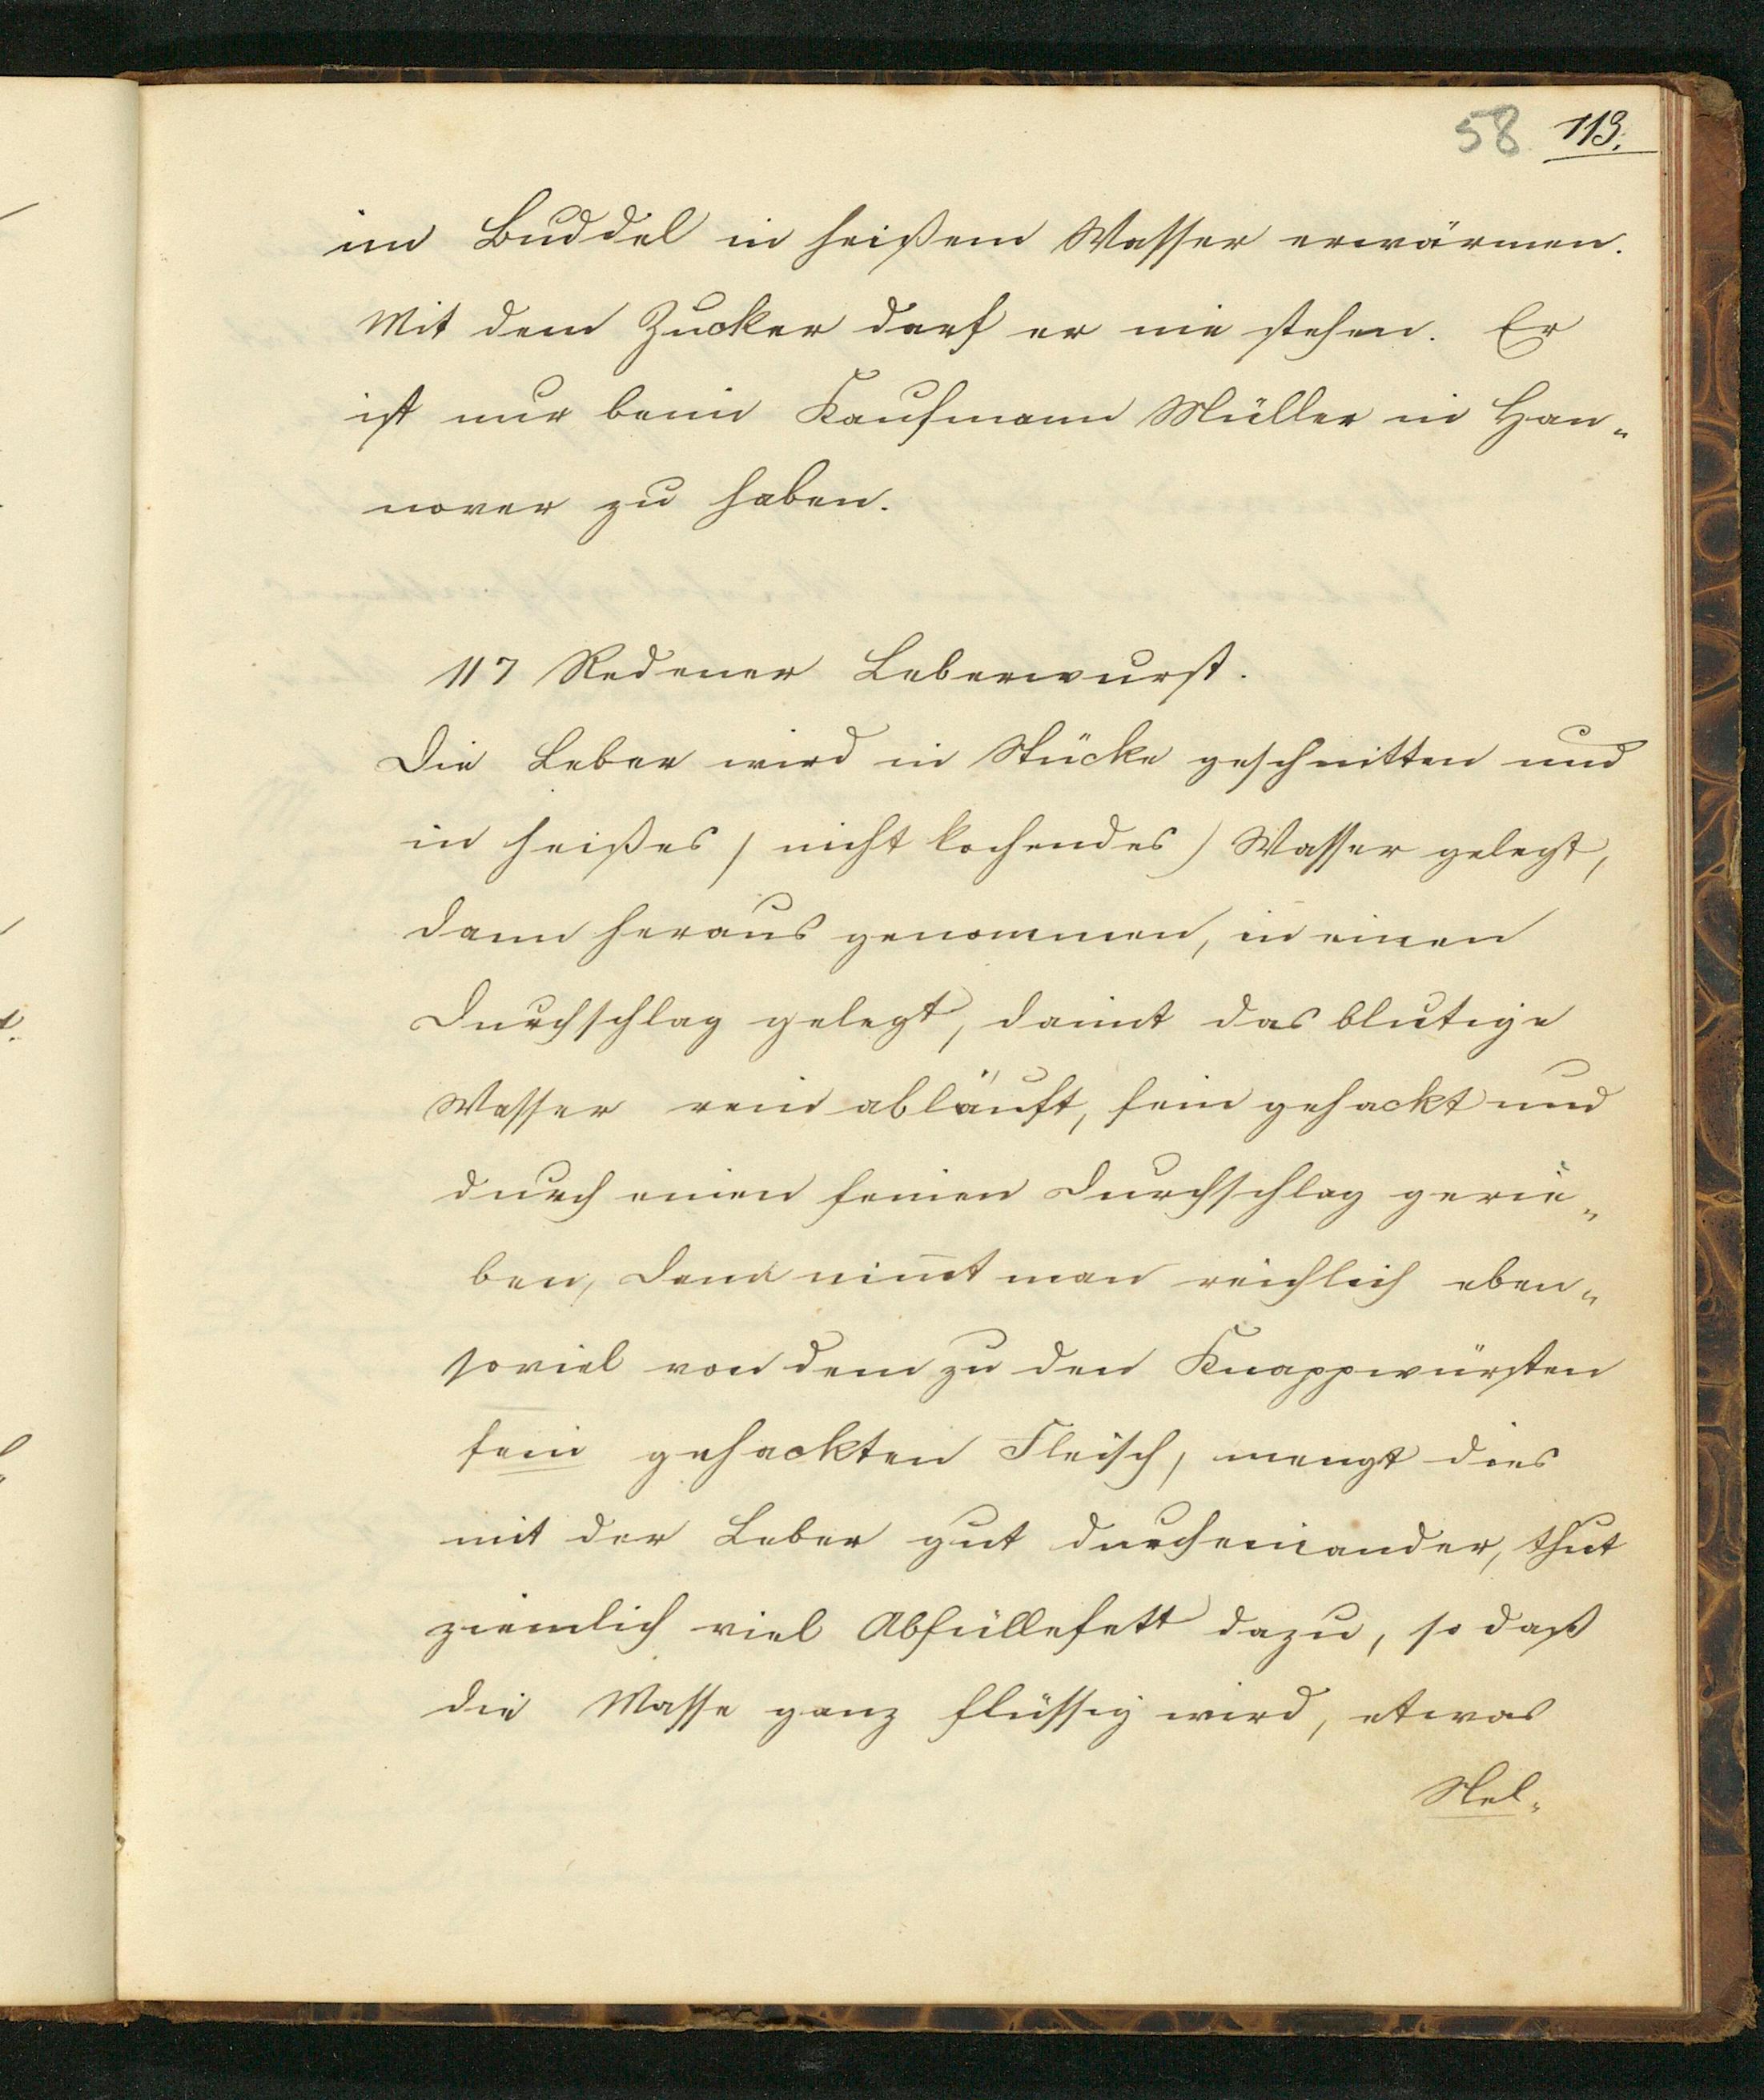 58 113.
im Buddel in heißem Wasser erwärmen.
Mit dem Zucker darf er nie stehen. Er
ist nur beim Kaufmann Müller in Han„
nover zu haben.
117 Redener Leberwurst.
Die Leber wird in Stücke geschnitten und
in heißes (nicht kochendes) Wasser gelegt,
dann heraus genommen, in einen
Durchschlag gelegt, damit das blutige
Wasser rein abläuft, fein gehackt und
durch einen feinen Durchschlag gerie„
ben, dann nim̅t man reichlich eben„
soviel von dem zu den Knappwürsten
fein gehackten Fleisch, mengt dies
mit der Leber gut durcheinander, thut
ziemlich viel Abfüllefett dazu, so daß
die Masse ganz flüssig wird, etwas
Nel„